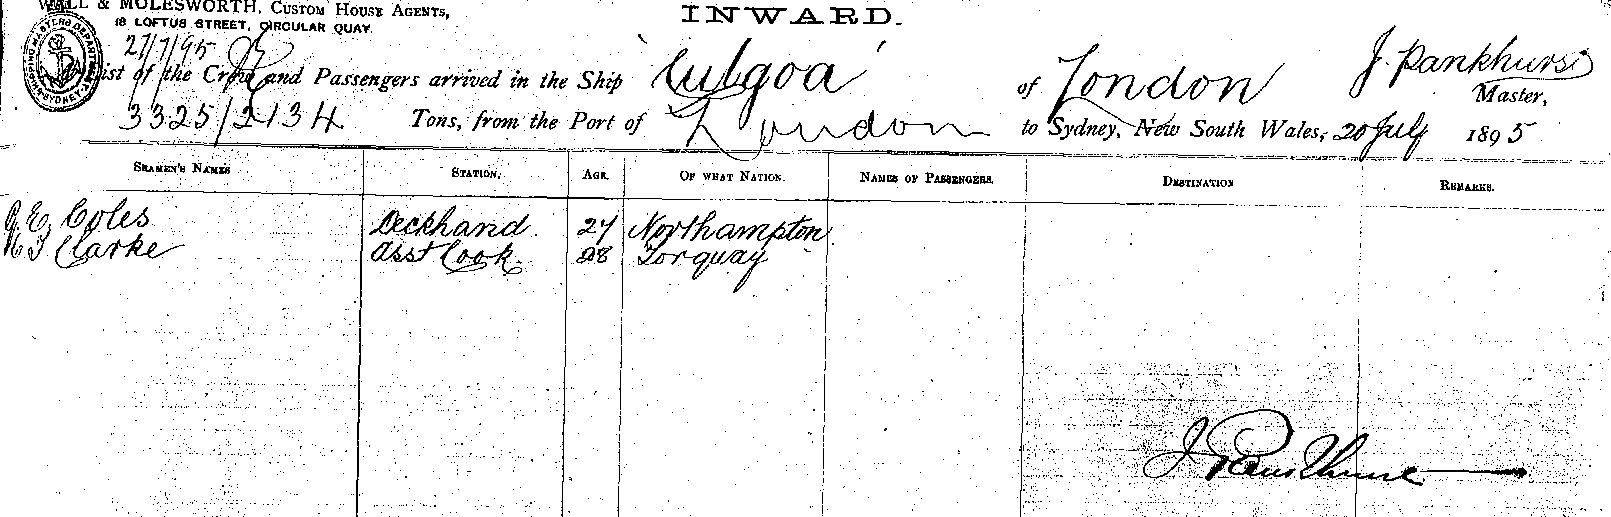 WALL & MOLESWORTH, CUSTOM HOUSE AGENTS,
18 LOFTUS STREET, CIRCULAR QUAY
INWARD.
27/7/95
List of the Crew and Passengers arrived in the Ship "Culgoa" of London J. Pankhurst Master,
3325/2134 Tons, from the Port of London to Sydney, New South Wales, 20 July 1895
SEAMEN'S NAMES STATION. AGE. OF WHAT NATION. NAMES OF PASSENGERS. DESTINATION REMARKS.
A E Coles Deckhand. 27 Northampton
Clarke Asst Cook. 28 Torquay
J Pankhurst